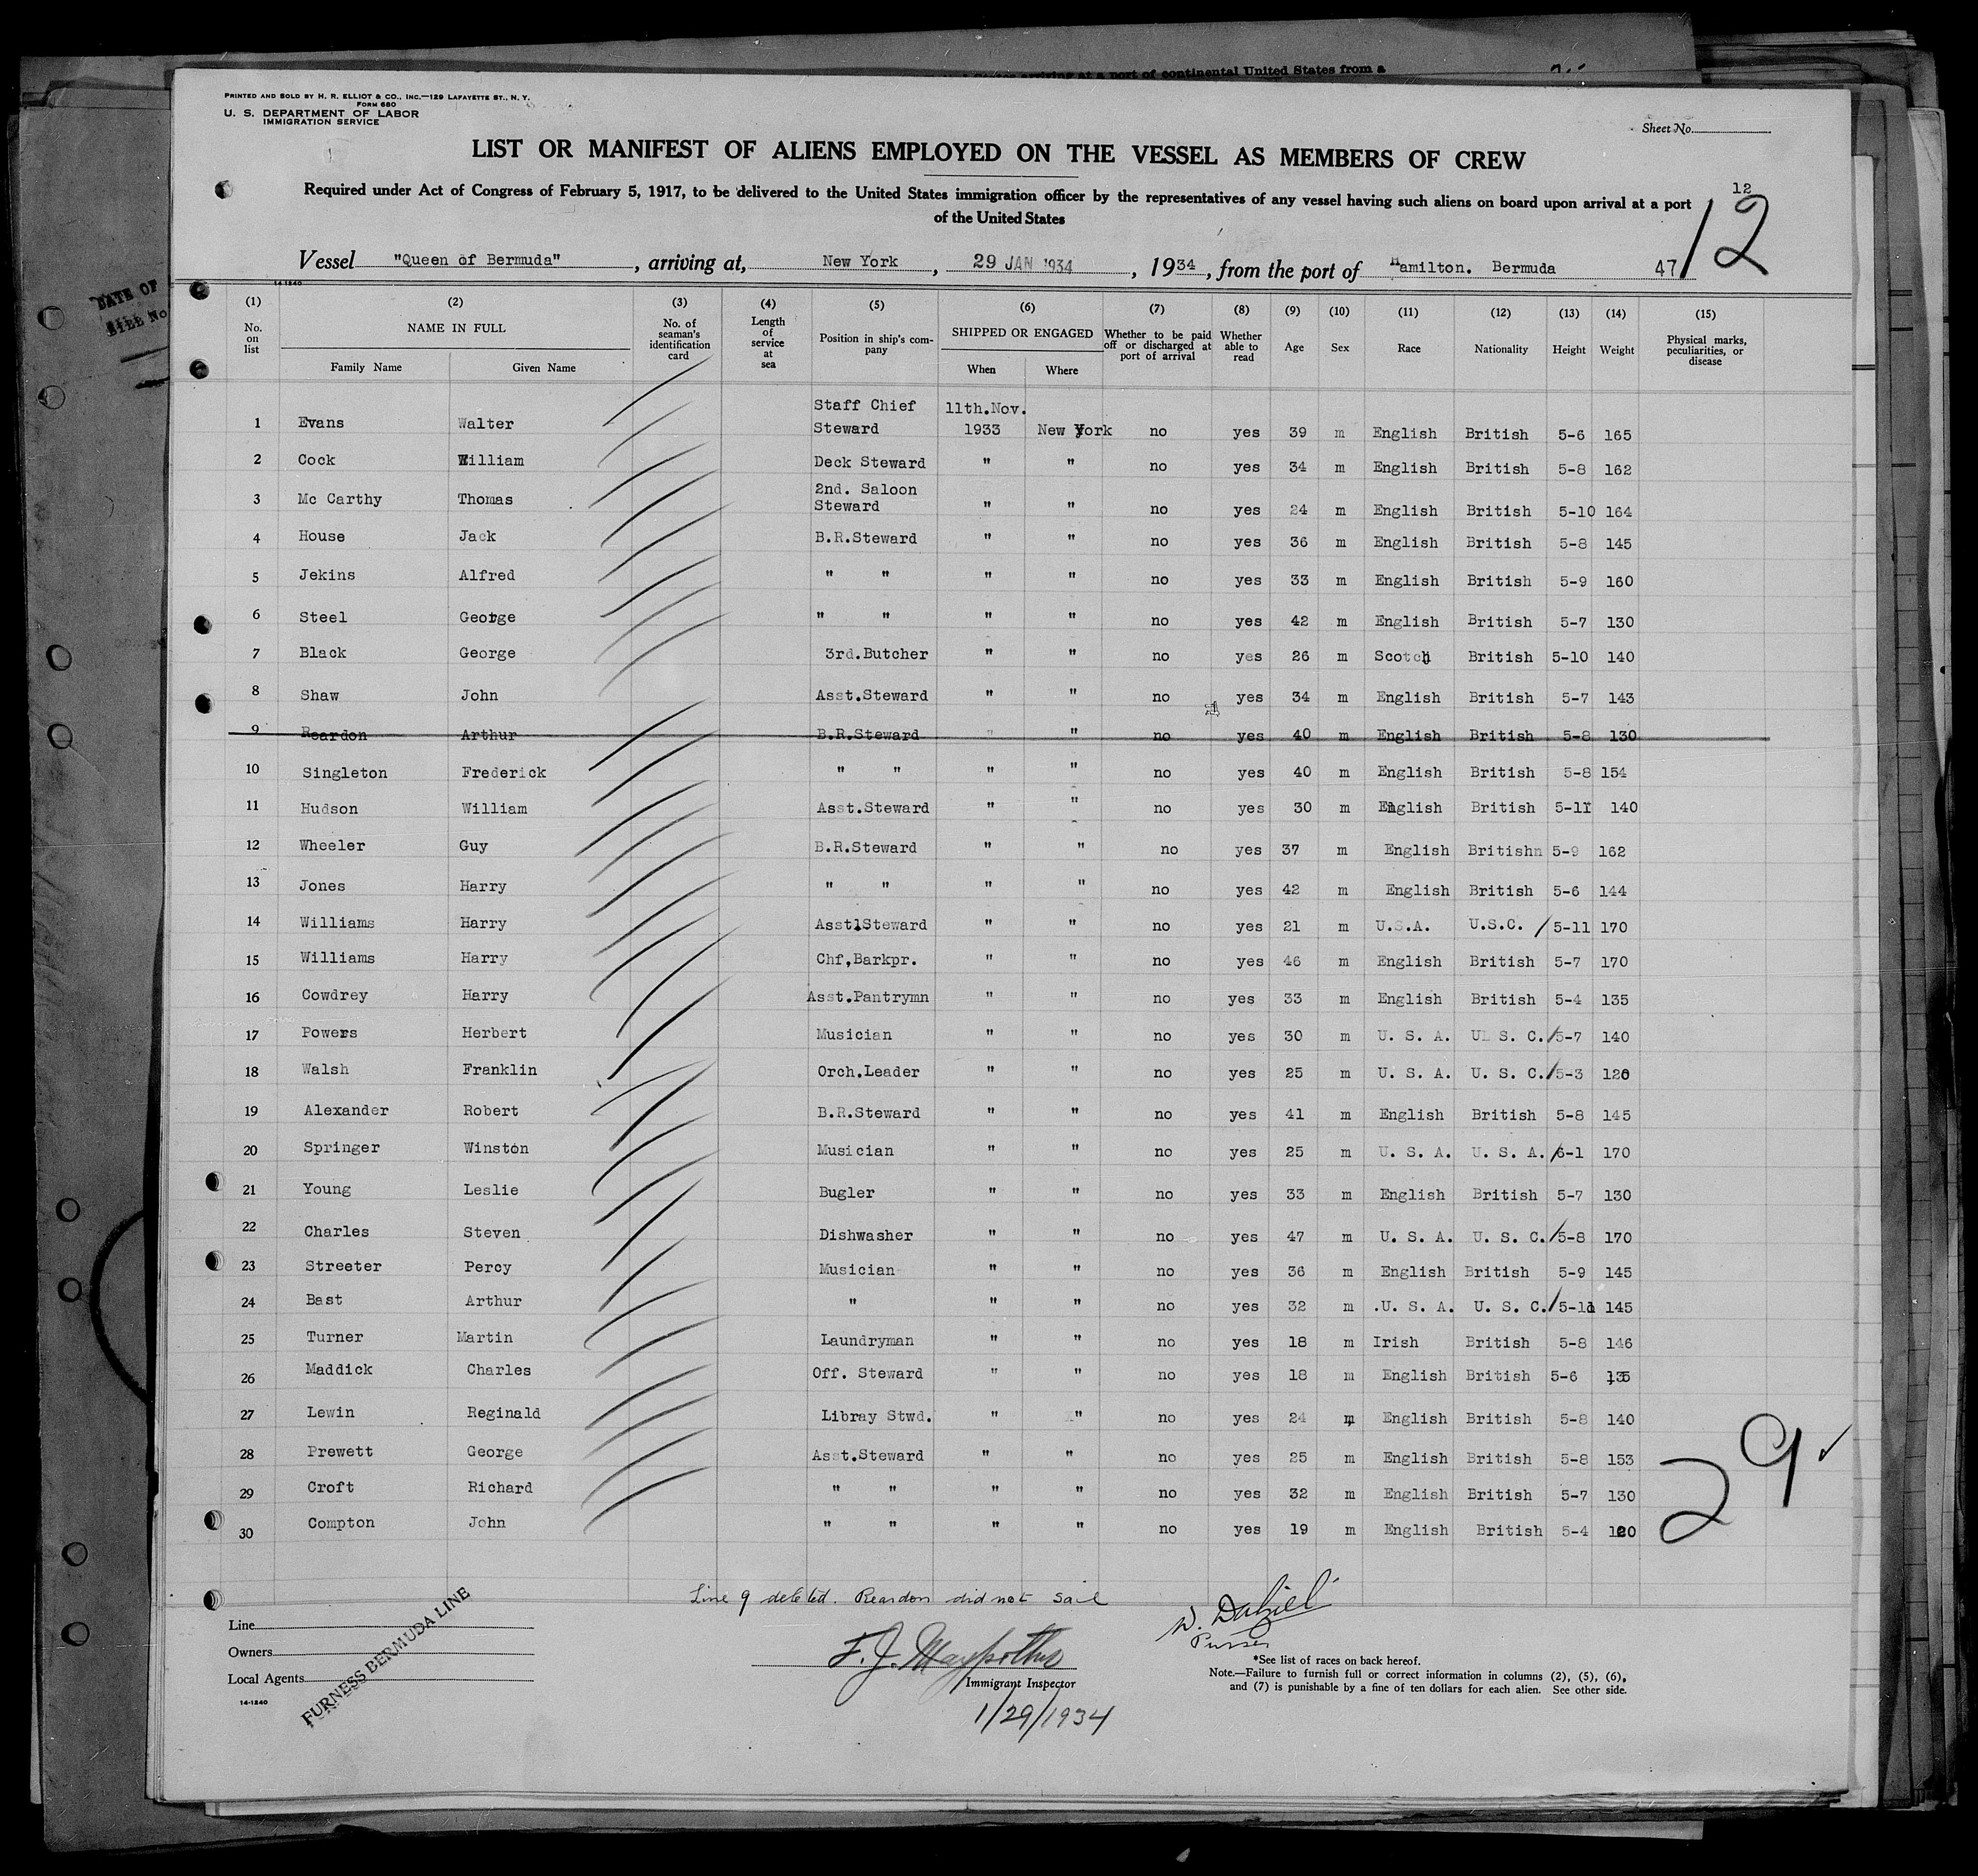 arriving at a port of continental United States from a
PRINTED AND SOLD BY H. R. ELLIOT & CO., INC.—129 LAFAYETTE ST., N. Y.
FORM 680
U. S. DEPARTMENT OF LABOR
IMMIGRATION SERVICE
Sheet No.
LIST OR MANIFEST OF ALIENS EMPLOYED ON THE VESSEL AS MEMBERS OF CREW
Required under Act of Congress of February 5, 1917, to be delivered to the United States immigration officer by the representatives of any vessel having such aliens on board upon arrival at a port
of the United States
12
12
Vessel "Queen of Bermuda", arriving at, New York, 29 JAN 1934, 1934, from the port of Hamilton. Bermuda 47
DATE OF
14-1240
(1) (2) (3) (4) (5) (6) (7) (8) (9) (10) (11) (12) (13) (14) (15)
No. on list NAME IN FULL Family Name Given Name No. of seaman's identification card Length of service at sea Position in ship's company SHIPPED OR ENGAGED When Where Whether to be paid off or discharged at port of arrival Whether able to read Age Sex Race Nationality Height Weight Physical marks, peculiarities, or disease
1 Evans Walter Staff Chief Steward 11th.Nov. 1933 New York no yes 39 m English British 5-6 165
2 Cock William Deck Steward " " no yes 34 m English British 5-8 162
3 Mc Carthy Thomas 2nd. Saloon Steward " " no yes 24 m English British 5-10 164
4 House Jack B.R.Steward " " no yes 36 m English British 5-8 145
5 Jekins Alfred " " " " no yes 33 m English British 5-9 160
6 Steel George " " " " no yes 42 m English British 5-7 130
7 Black George 3rd.Butcher " " no yes 26 m Scotch British 5-10 140
8 Shaw John Asst.Steward " " no yes 34 m English British 5-7 143
9 Reardon Arthur B.R.Steward " " no yes 40 m English British 5-8 130
10 Singleton Frederick " " " " no yes 40 m English British 5-8 154
11 Hudson William Asst.Steward " " no yes 30 m English British 5-11 140
12 Wheeler Guy B.R.Steward " " no yes 37 m English Britishn 5-9 162
13 Jones Harry " " " " no yes 42 m English British 5-6 144
14 Williams Harry Asst1Steward " " no yes 21 m U.S.A. U.S.C. / 5-11 170
15 Williams Harry Chf,Barkpr. " " no yes 46 m English British 5-7 170
16 Cowdrey Harry Asst.Pantrymn " " no yes 33 m English British 5-4 135
17 Powers Herbert Musician " " no yes 30 m U. S. A. U. S. C. / 5-7 140
18 Walsh Franklin Orch.Leader " " no yes 25 m U. S. A. U. S. C. / 5-3 120
19 Alexander Robert B.R.Steward " " no yes 41 m English British 5-8 145
20 Springer Winston Musician " " no yes 25 m U. S. A. U. S. A. / 6-1 170
21 Young Leslie Bugler " " no yes 33 m English British 5-7 130
22 Charles Steven Dishwasher " " no yes 47 m U. S. A. U. S. C. / 5-8 170
23 Streeter Percy Musician " " no yes 36 m English British 5-9 145
24 Bast Arthur " " " no yes 32 m .U. S. A. U. S. C. / 5-11 145
25 Turner Martin Laundryman " " no yes 18 m Irish British 5-8 146
26 Maddick Charles Off. Steward " " no yes 18 m English British 5-6 135
27 Lewin Reginald Libray Stwd. " " no yes 24 m English British 5-8 140
28 Prewett George Asst.Steward " " no yes 25 m English British 5-8 153
29 Croft Richard " " " " no yes 32 m English British 5-7 130
30 Compton John " " " " no yes 19 m English British 5-4 120
29 ✓
Line 9 deleted. Reardon did not sail
W. Dalziel
Purser
Line
Owners
Local Agents
FURNESS BERMUDA LINE
14-1240
Immigrant Inspector
1/29/1934
*See list of races on back hereof.
Note.—Failure to furnish full or correct information in columns (2), (5), (6),
and (7) is punishable by a fine of ten dollars for each alien. See other side.